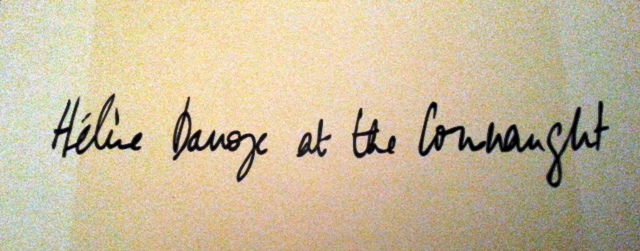 Hélène Darroze at the Connaught